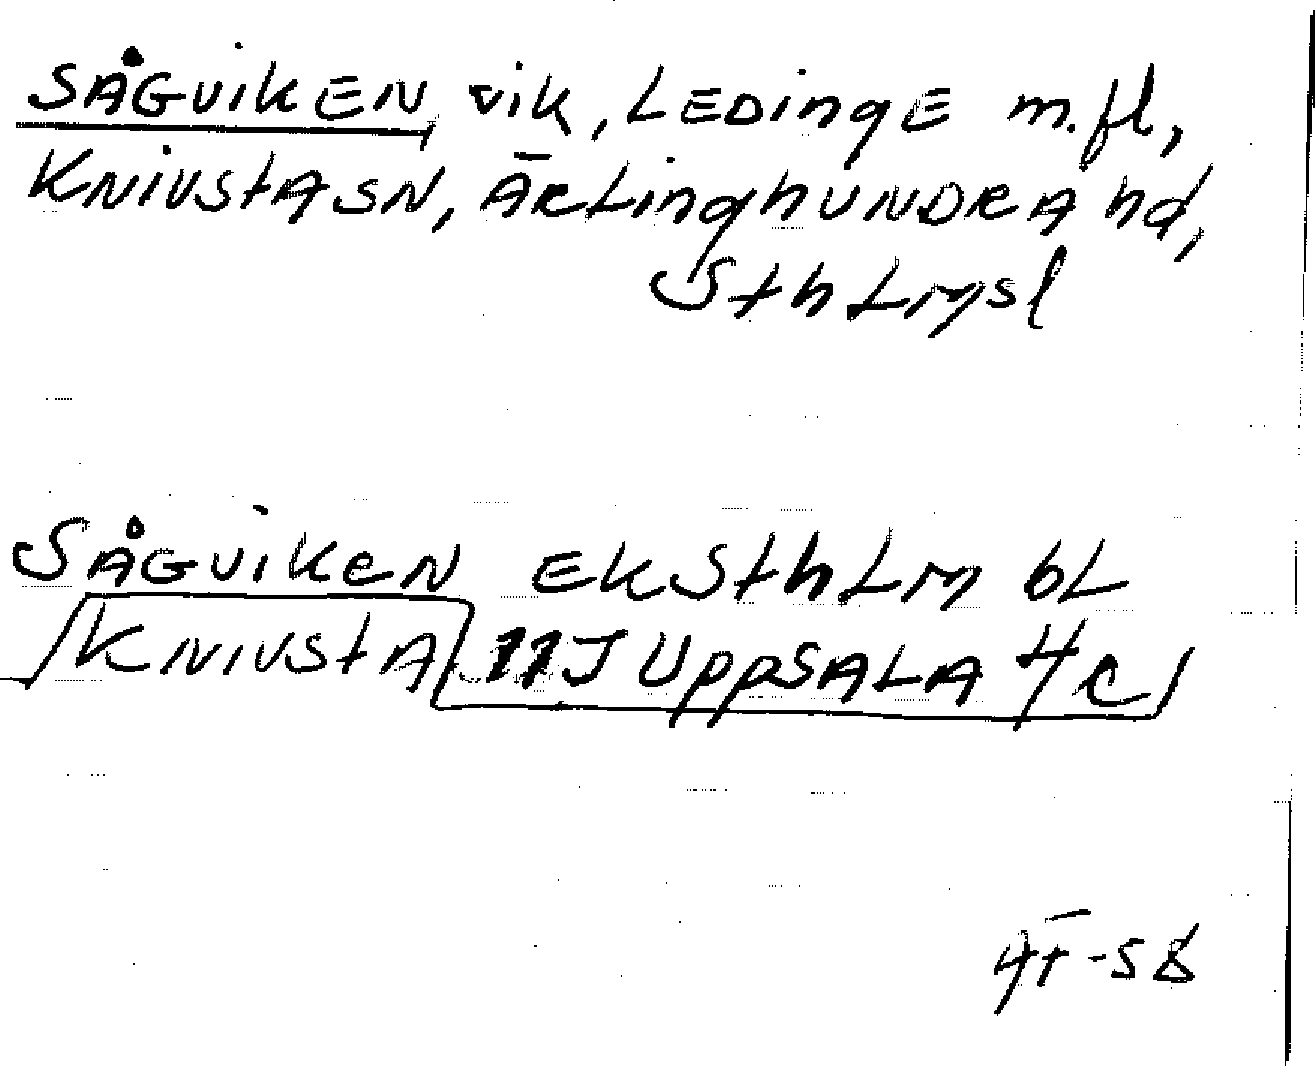 SÅGVIKEN vik, LEDINGE m.fl,
KNIVSTA SN, ÄRLINGHUNDRA hd,
SthLmsl
SÅGVIKEN EK SthLm bL
KNIVSTA 11J UPPSALA 4c